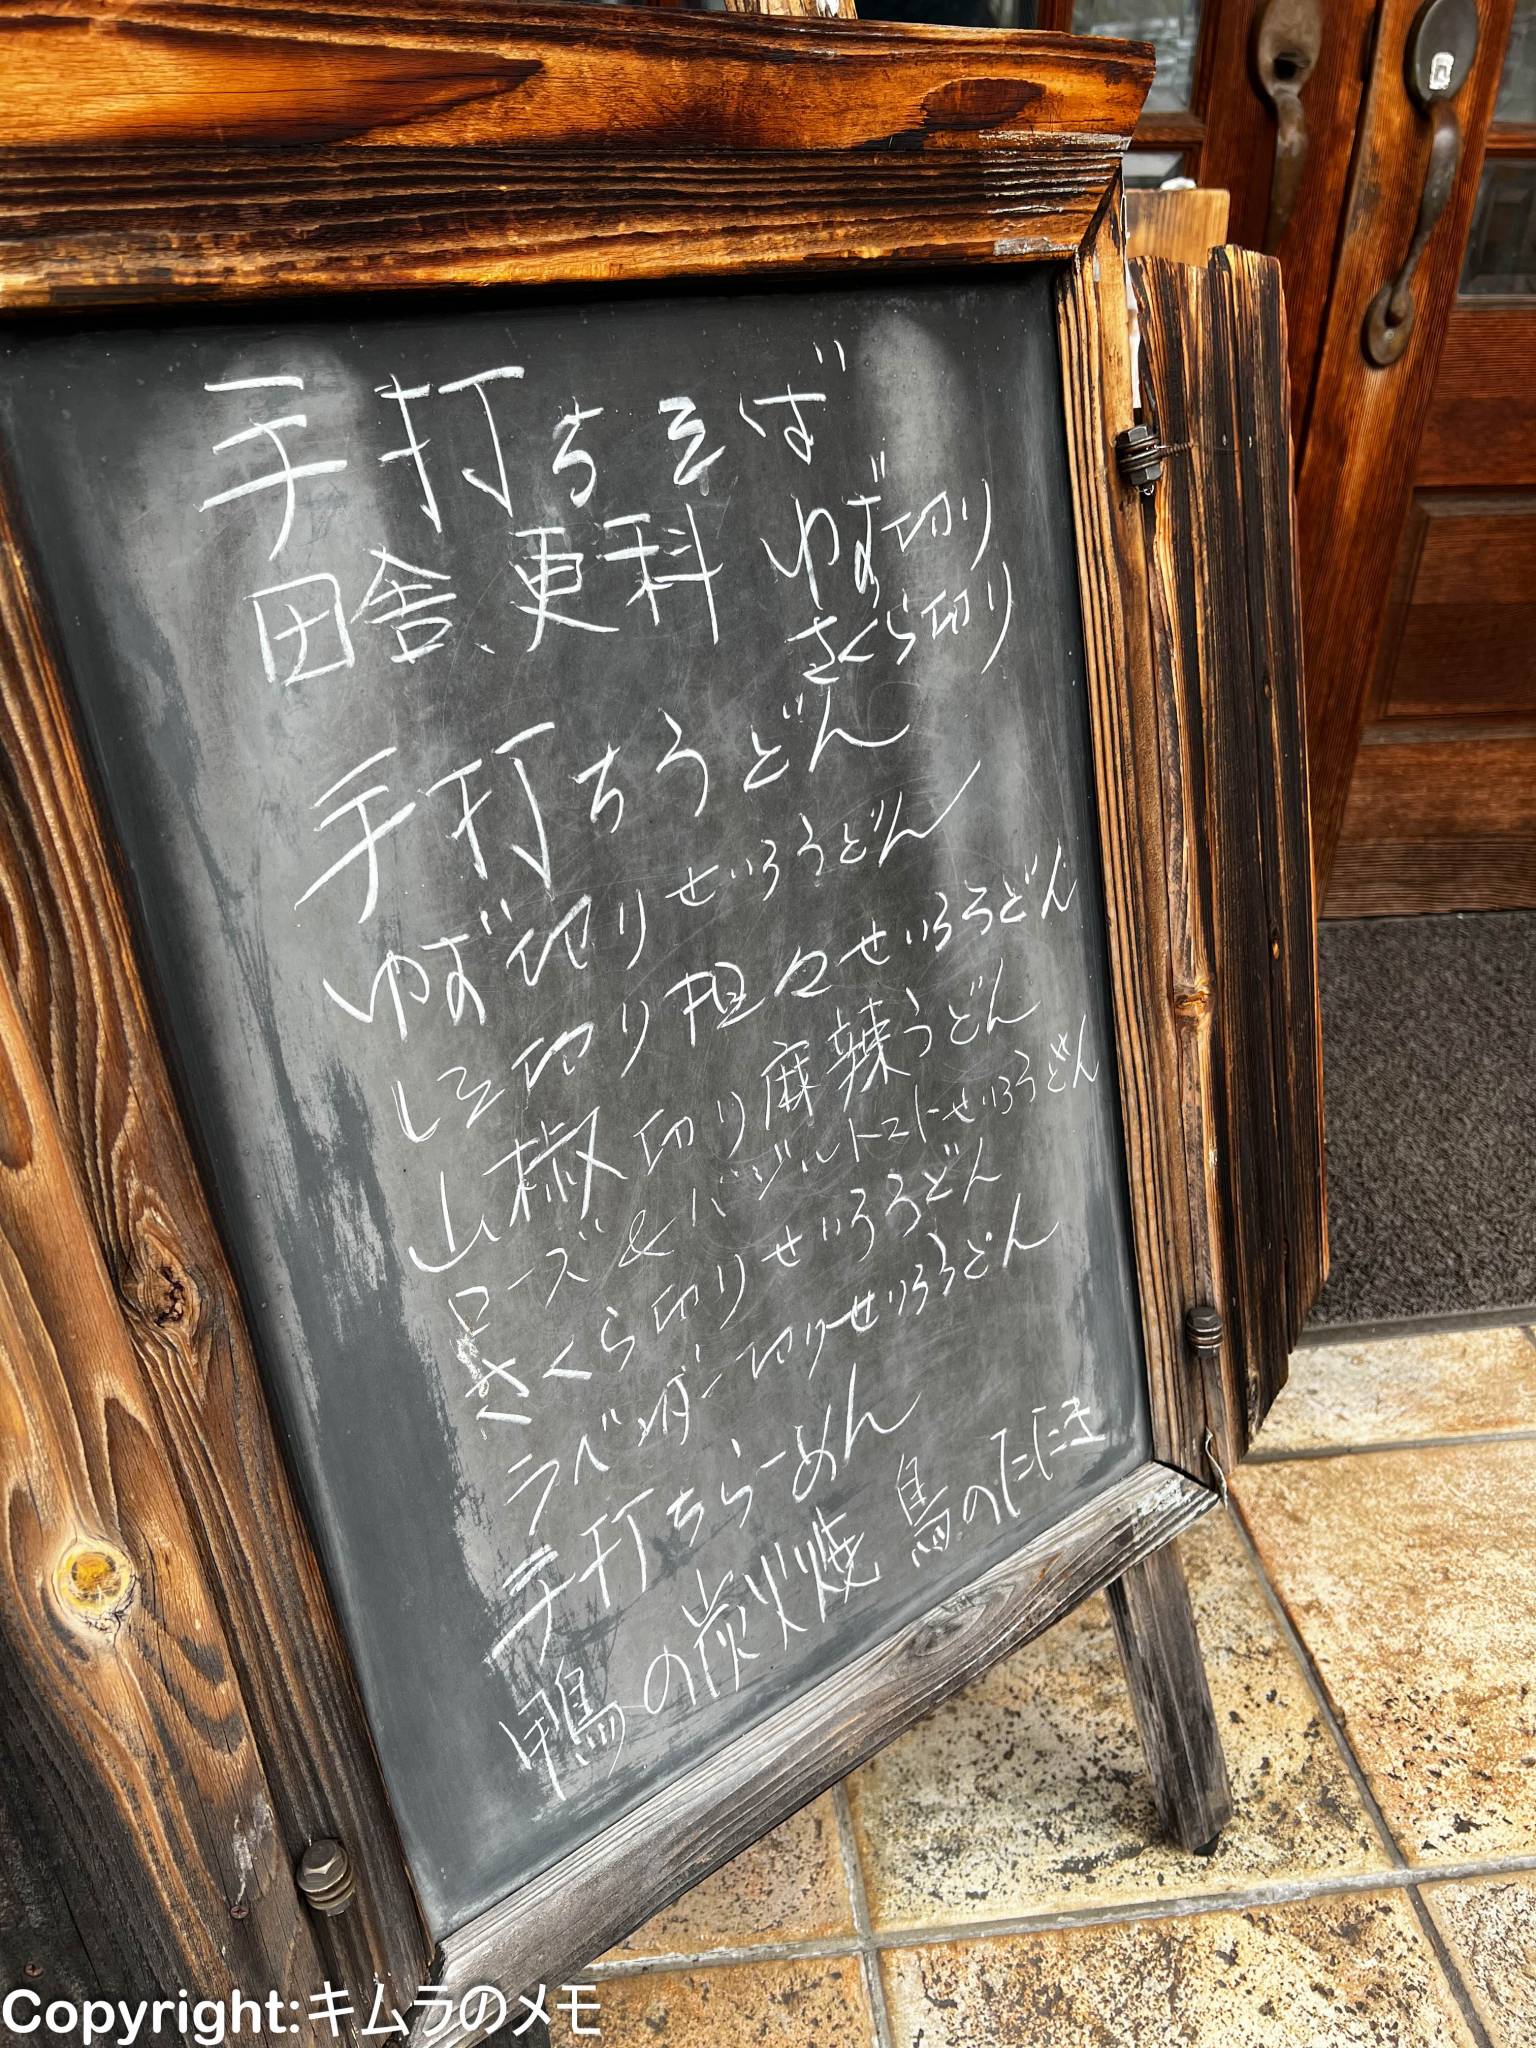 手打ちそば
田舎、更科 ゆず切り
さくら切り
手打ちうどん
ゆず切りせいろうどん
しそ切り担々せいろうどん
山椒切り麻辣うどん
ローズ&バジルトマトせいろうどん
さくら切りせいろうどん
ラベンダー切りせいろうどん
手打ちらーめん
鴨の炭火焼 鳥のたたき
Copyright:キムラのメモ